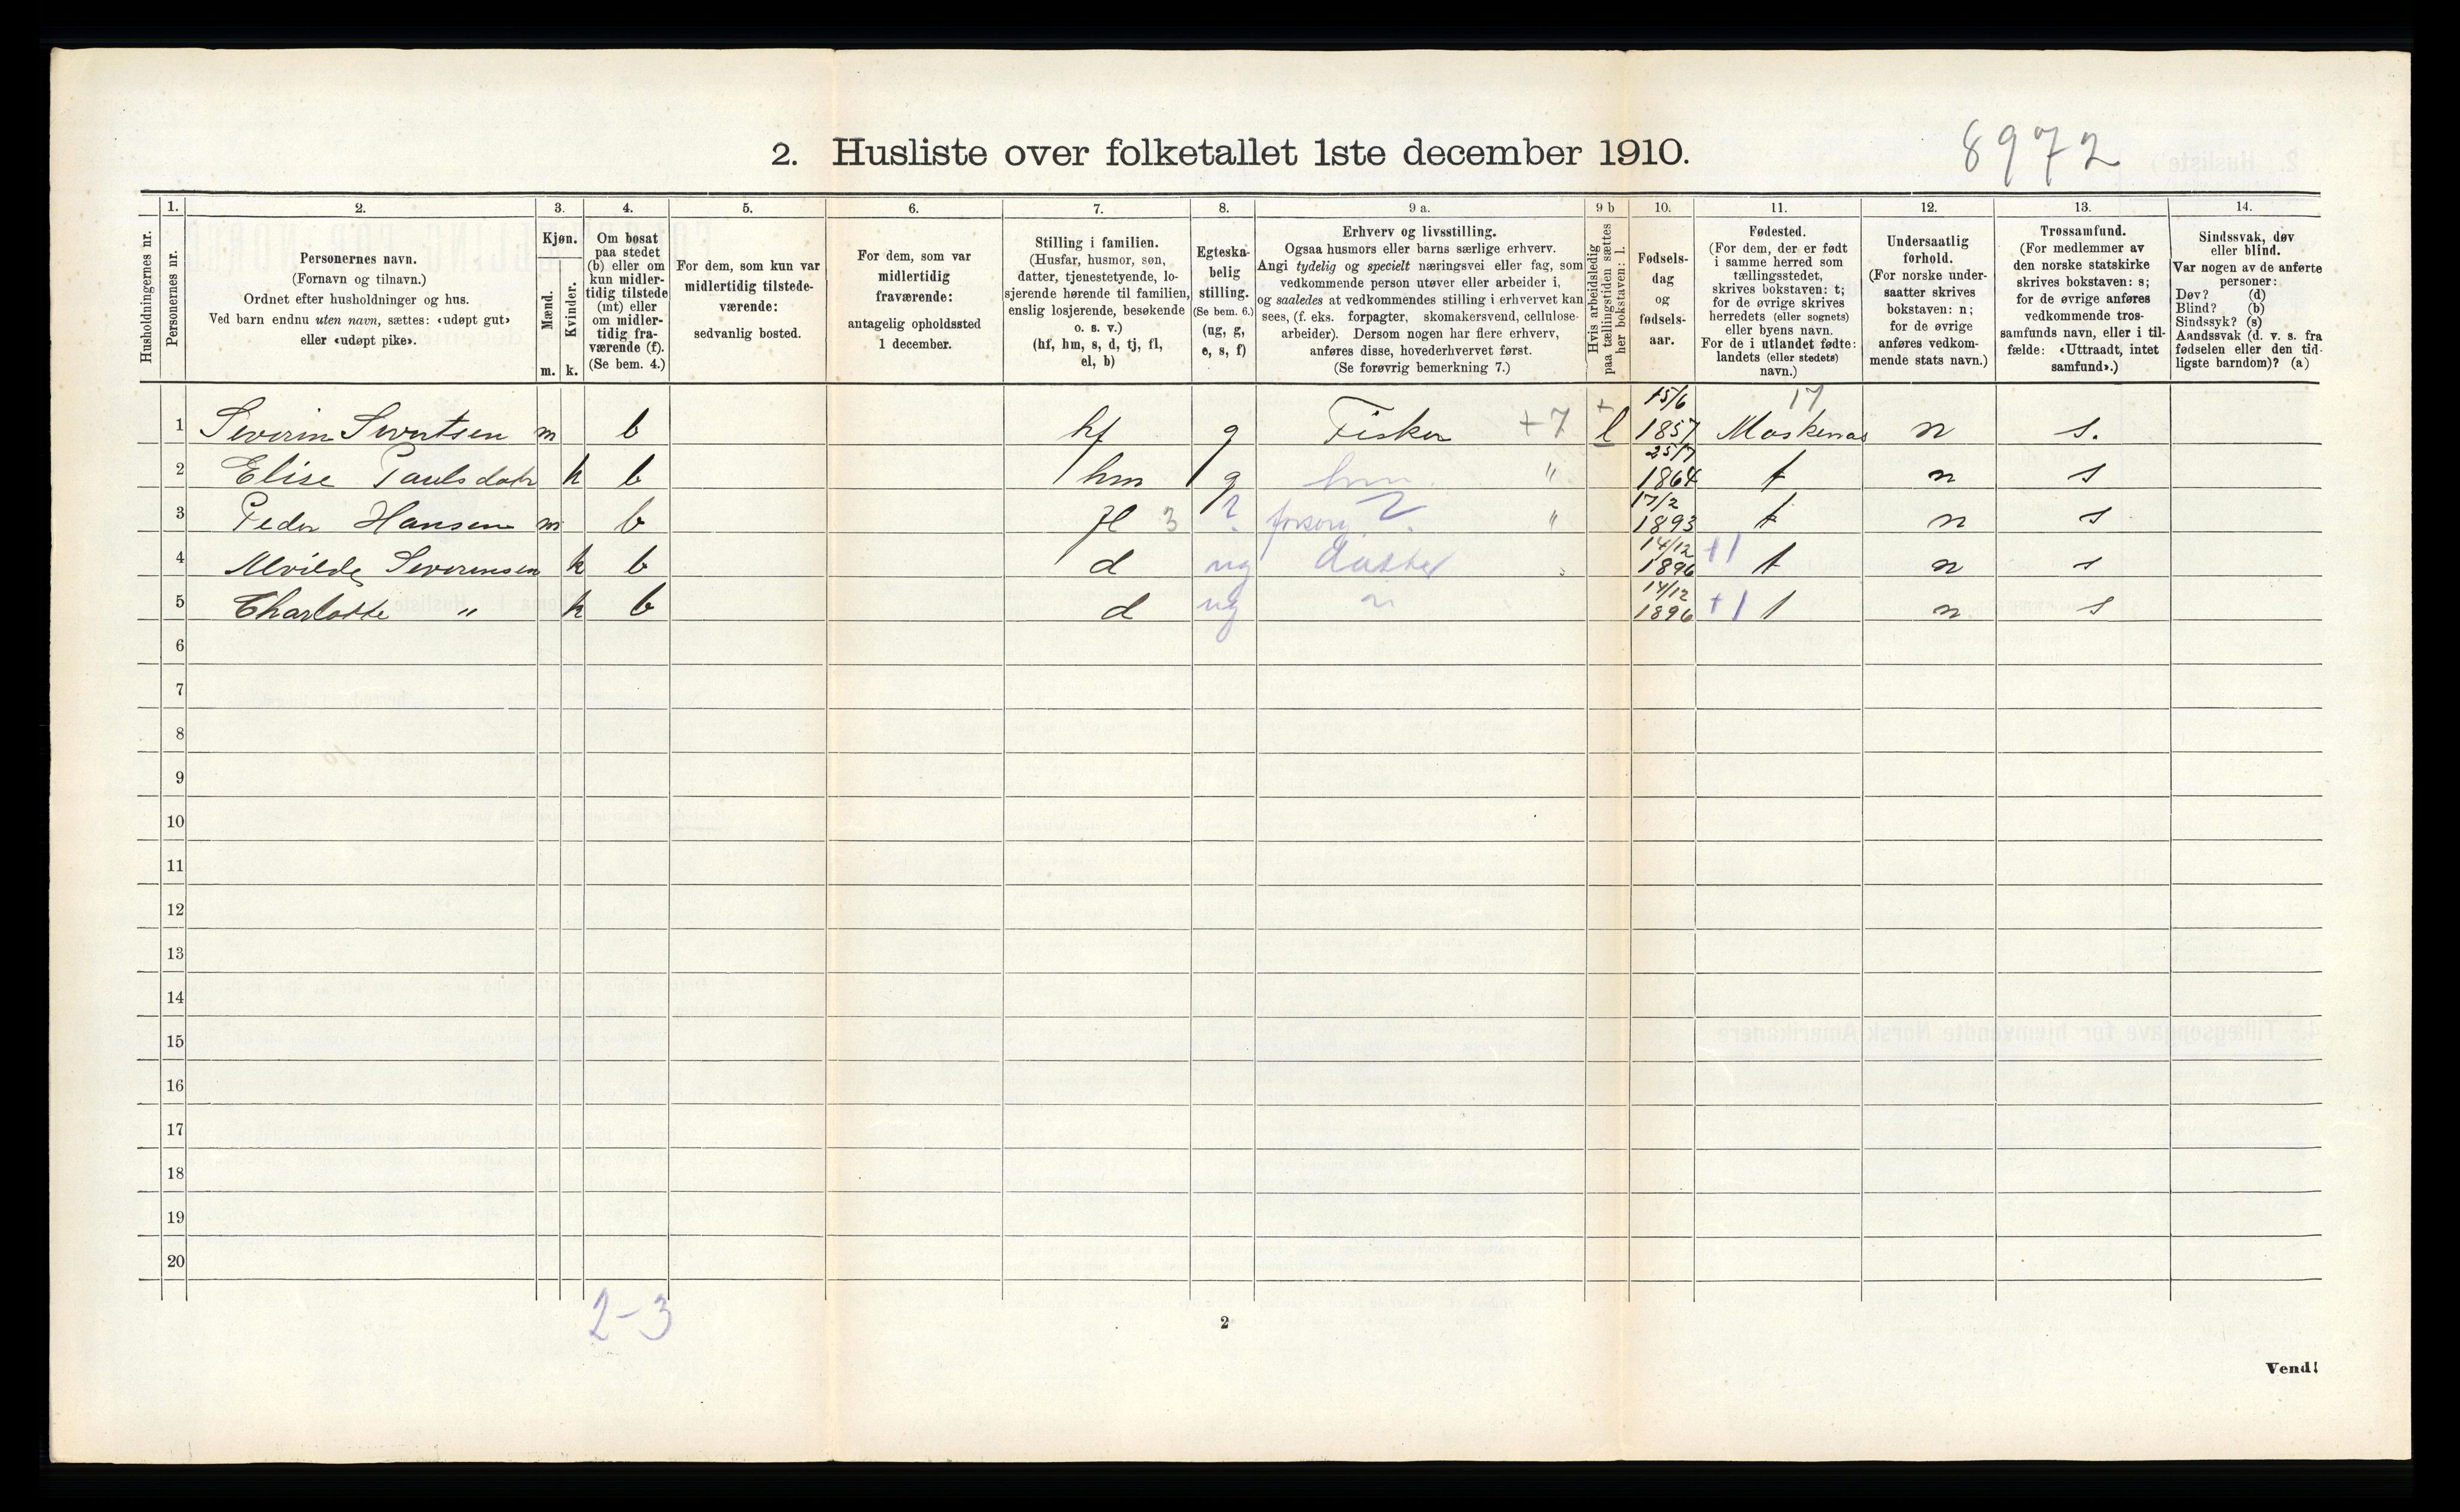 2. Husliste over folketallet 1ste december 1910.
8972
Husholdningernes nr.
1.
Personernes nr.
2.
Personernes navn.
(Fornavn og tilnavn.)
Ordnet efter husholdninger og hus.
Ved barn endnu uten navn, sættes: «udøpt gut»
eller «udøpt pike».
3.
Kjøn.
Mænd.
Kvinder.
m. k.
4.
Om bosat
paa stedet
(b) eller om
kun midler-
tidig tilstede
(mt) eller
om midler-
tidig fra-
værende (f).
(Se bem. 4.)
5.
For dem, som kun var
midlertidig tilstede-
værende:
sedvanlig bosted.
6.
For dem, som var
midlertidig
fraværende:
antagelig opholdssted
1 december.
7.
Stilling i familien.
(Husfar, husmor, søn,
datter, tjenestetyende, lo-
sjerende hørende til familien,
enslig losjerende, besøkende
o. s. v.)
(hf, hm, s, d, tj, fl,
el, b)
8.
Egteska-
belig
stilling.
(Se bem. 6.)
(ug, g,
e, s, f)
9 a.
Erhverv og livsstilling.
Ogsaa husmors eller barns særlige erhverv.
Angi tydelig og specielt næringsvei eller fag, som
vedkommende person utøver eller arbeider i,
og saaledes at vedkommendes stilling i erhvervet kan
sees, (f. eks. forpagter, skomakersvend, cellulose-
arbeider). Dersom nogen har flere erhverv,
anføres disse, hovederhvervet først.
(Se forøvrig bemerkning 7.)
9 b
Hvis arbeidsledig
paa tællingstiden sættes
her bokstaven: l.
10.
Fødsels-
dag
og
fødsels-
aar.
11.
Fødested.
(For dem, der er født
i samme herred som
tællingsstedet,
skrives bokstaven: t;
for de øvrige skrives
herredets (eller sognets)
eller byens navn.
For de i utlandet fødte:
landets (eller stedets)
navn.)
12.
Undersaatlig
forhold.
(For norske under-
saatter skrives
bokstaven: n;
for de øvrige
anføres vedkom-
mende stats navn.)
13.
Trossamfund.
(For medlemmer av
den norske statskirke
skrives bokstaven: s;
for de øvrige anføres
vedkommende tros-
samfunds navn, eller i til-
fælde: «Uttraadt, intet
samfund».)
14.
Sindssvak, døv
eller blind.
Var nogen av de anførte
personer:
Døv? (d)
Blind? (b)
Sindssyk? (s)
Aandssvak (d. v. s. fra
fødselen eller den tid-
ligste barndom)? (a)
15/6 17
1 Severin Sivertsen m b hf g Fisker +7 + l 1857 Moskenas n s.
25/7
2 Elise Paulsdatr k b hm g hm " 1864 t n s
17/2
3 Peder Hansen m b fl 3 ? forsørg ? " 1893 t n s
14/12
4 Alvilde Severensen k b d ug datter 1896 +1 t n s
14/12
5 Charlotte " k b d ug " 1896 +1 t n s
6
7
8
9
10
11
12
13
14
15
16
17
18
19
20
2-3
2
Vend!